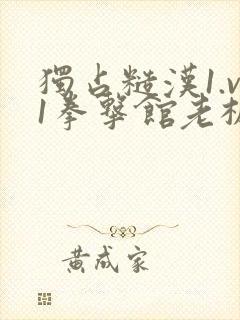 獨占糙漢1.v
1拳擊館老板
黃成家